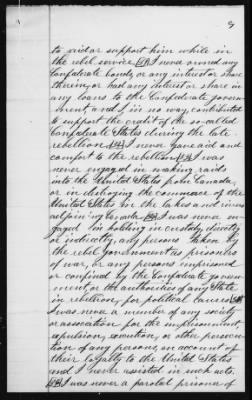 to aid or support him while in
the rebel service. I never owned any
Confederate bonds, or any interest or share
therein, or had any interest or share in
any loans to the Confederate govern-
ment, and I, in no way, contributed
to support the credit of the so-called
Confederate States during the late
rebellion. I never gave aid and
comfort to the rebellion. I was
never engaged in making raids
into the United States from Canada,
or in destroying the commerce of the
United States on the lakes and rivers
adjoining Canada. I was never en-
gaged in holding in custody directly
or indirectly, any persons taken by
the rebel government as prisoners
of war, or any person imprisoned
or confined by the Confederate govern-
ment, or the authorities of any State
in rebellion, for political causes.
I was never a member of any society
or association for the imprisonment,
expulsion, execution, or other persecu-
tion of any persons, on account of
their loyalty to the United States
and I never assisted in such acts.
I was never a paroled prisoner of